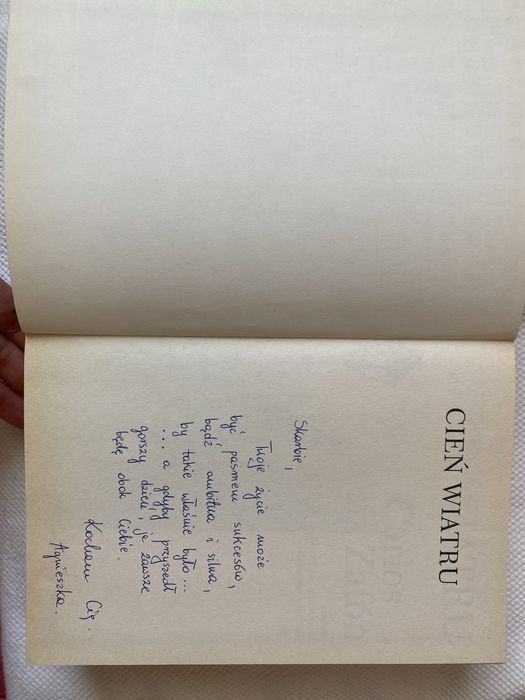 CIEŃ WIATRU
Skarbie,
Twoje życie może
być pasmem sukcesów,
bądź ambitna i silna,
by takie właśnie było...
... a gdyby przyszedł
gorszy dzień, ja zawsze
będę obok Ciebie.
Kocham Cię.
Agnieszka.